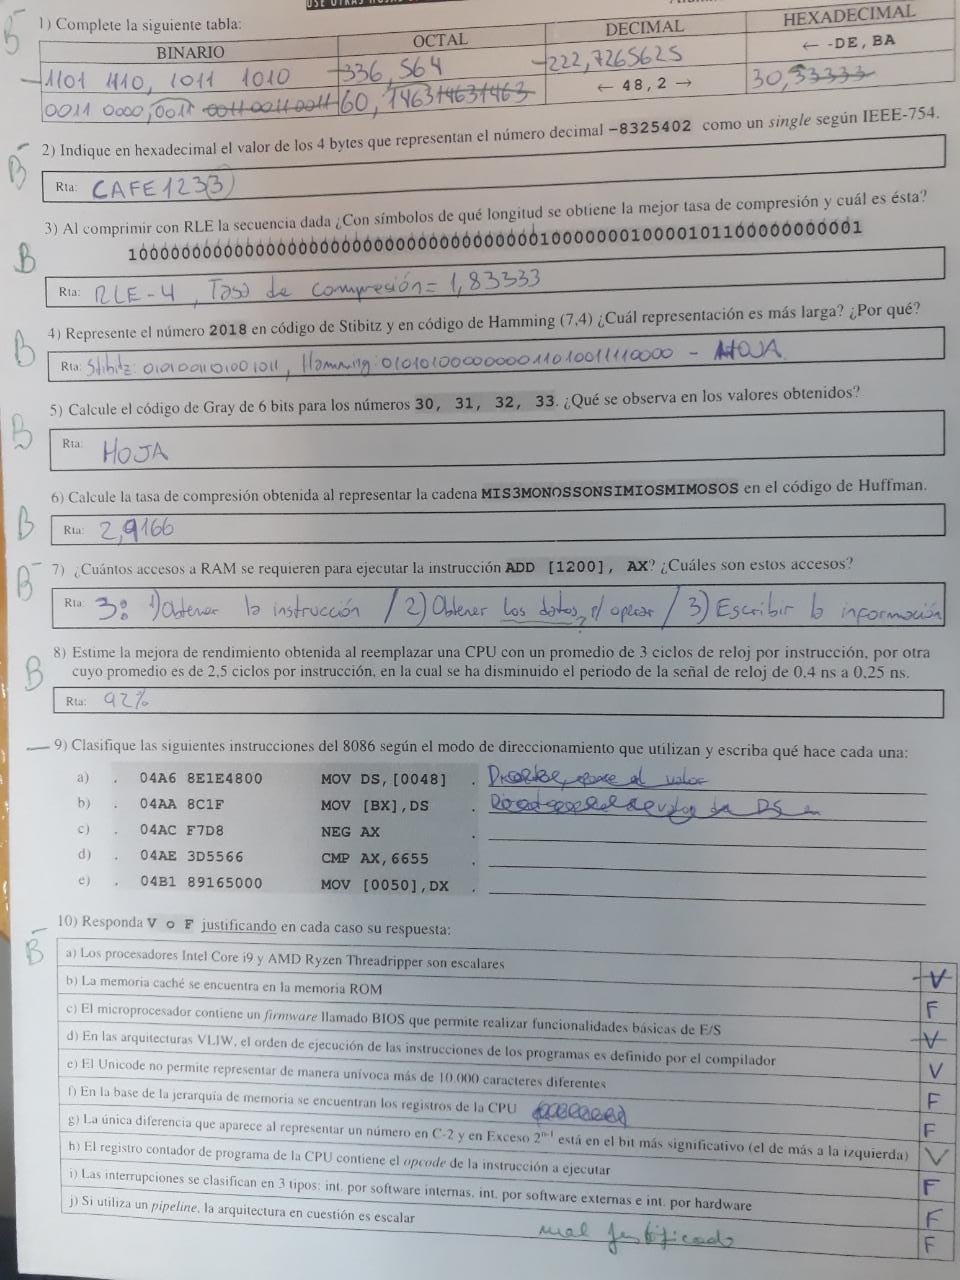 1) Complete la siguiente tabla:
B-
BINARIO OCTAL DECIMAL HEXADECIMAL
-1101 1110, 1011 1010 -336, 564 -222,7265625 ← -DE, BA
0011 0000, 0011 0011 0011 0011 60, 146314631463 ← 48,2 → 30,33333
2) Indique en hexadecimal el valor de los 4 bytes que representan el número decimal -8325402 como un single según IEEE-754.
B-
Rta: CAFE1233
3) Al comprimir con RLE la secuencia dada ¿Con símbolos de qué longitud se obtiene la mejor tasa de compresión y cuál es ésta?
B
Rta: RLE-4, Tasa de compresión = 1,83333
4) Represente el número 2018 en código de Stibitz y en código de Hamming (7,4) ¿Cuál representación es más larga? ¿Por qué?
B
Rta: Stibitz: 0101001101001011, Hamming: - HOJA
5) Calcule el código de Gray de 6 bits para los números 30, 31, 32, 33. ¿Qué se observa en los valores obtenidos?
B
Rta: HOJA
6) Calcule la tasa de compresión obtenida al representar la cadena MIS3MONOSSONSIMIOSMIMOSOS en el código de Huffman.
B
Rta: 2,9166
7) ¿Cuántos accesos a RAM se requieren para ejecutar la instrucción ADD [1200], AX? ¿Cuáles son estos accesos?
B-
Rta: 3: 1) Obtener la instrucción / 2) Obtener los datos p/ operar / 3) Escribir la información
8) Estime la mejora de rendimiento obtenida al reemplazar una CPU con un promedio de 3 ciclos de reloj por instrucción, por otra
cuyo promedio es de 2,5 ciclos por instrucción, en la cual se ha disminuido el periodo de la señal de reloj de 0,4 ns a 0,25 ns.
B
Rta: 92%
— 9) Clasifique las siguientes instrucciones del 8086 según el modo de direccionamiento que utilizan y escriba qué hace cada una:
a) . 04A6 8E1E4800 MOV DS,[0048] .
b) . 04AA 8C1F MOV [BX],DS .
c) . 04AC F7D8 NEG AX .
d) . 04AE 3D5566 CMP AX,6655 .
e) . 04B1 89165000 MOV [0050],DX .
10) Responda V o F justificando en cada caso su respuesta:
B-
a) Los procesadores Intel Core i9 y AMD Ryzen Threadripper son escalares V
b) La memoria caché se encuentra en la memoria ROM F
c) El microprocesador contiene un firmware llamado BIOS que permite realizar funcionalidades básicas de E/S V
d) En las arquitecturas VLIW, el orden de ejecución de las instrucciones de los programas es definido por el compilador V
e) El Unicode no permite representar de manera unívoca más de 10.000 caracteres diferentes F
f) En la base de la jerarquía de memoria se encuentran los registros de la CPU F
g) La única diferencia que aparece al representar un número en C-2 y en Exceso 2ⁿ⁻¹ está en el bit más significativo (el de más a la izquierda) V
h) El registro contador de programa de la CPU contiene el opcode de la instrucción a ejecutar F
i) Las interrupciones se clasifican en 3 tipos: int. por software internas, int. por software externas e int. por hardware F
j) Si utiliza un pipeline, la arquitectura en cuestión es escalar F
mal justificado